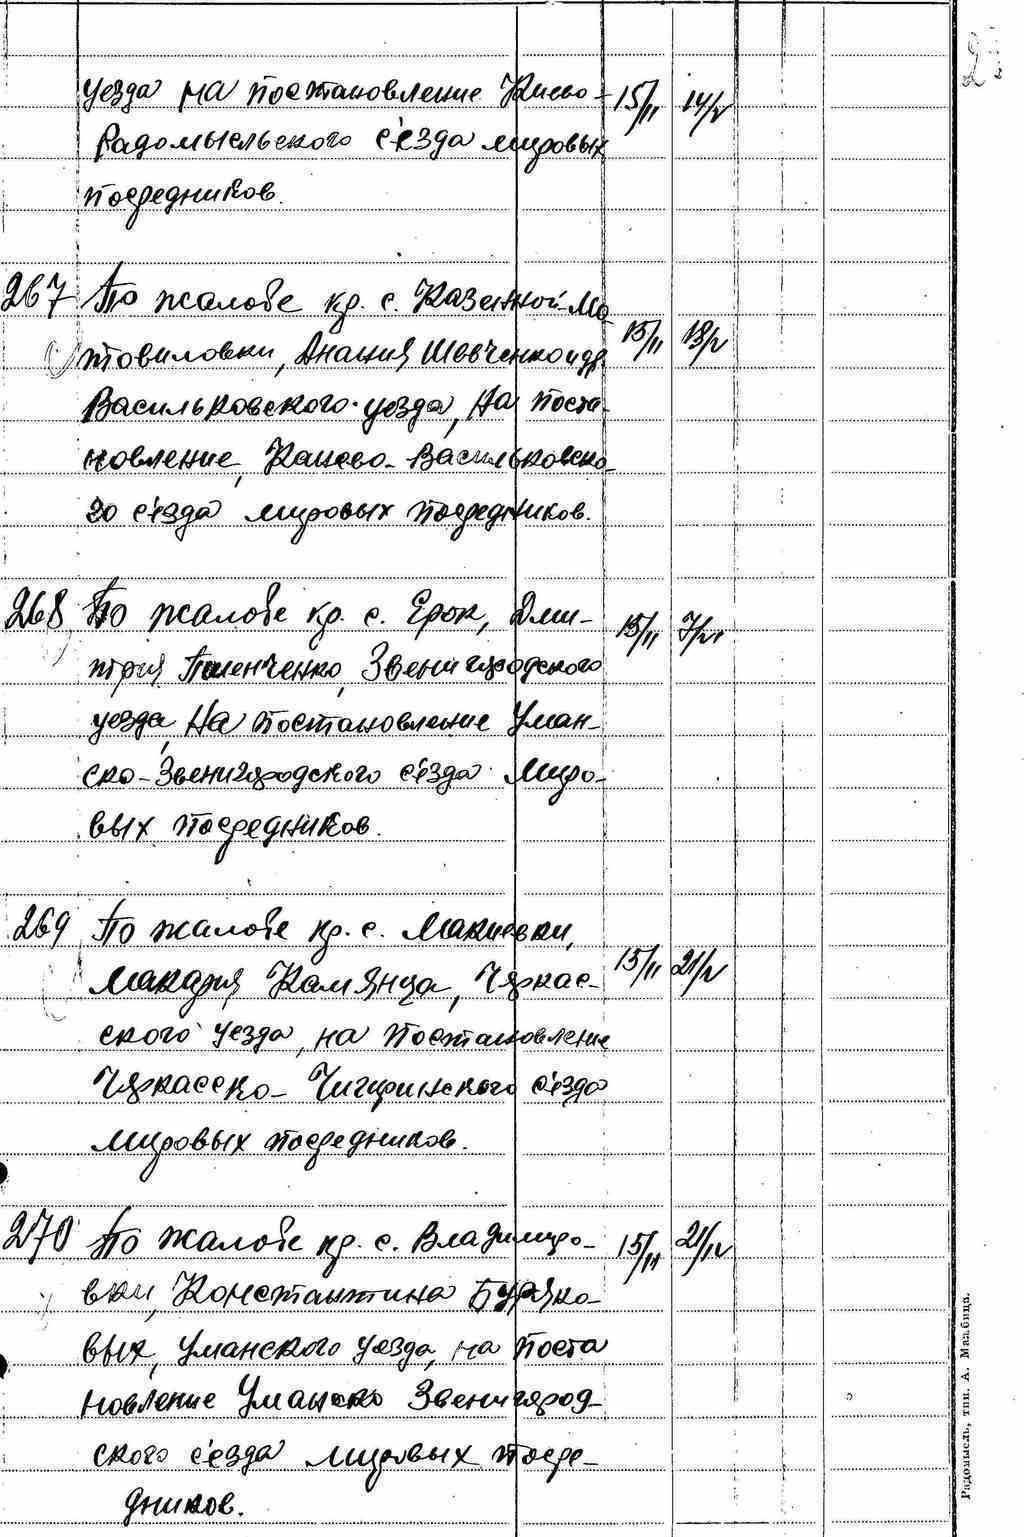 уезда на постановление Киево- 15/II 14/V
Радомысльского с'езда мировых
посредников.
267 По жалобе кр. с. Казенной-Мо-
товиловки, Анания Шевченко и др. 15/II 18/V
Васильковского уезда, на поста-
новление, Киево-Васильковско-
го с'езда мировых посредников.
268 По жалобе кр. с. Ерок, Дми- 15/II
трия Пшенченко, Звенигородского
уезда, на постановление Уман-
ско-Звенигородского с'езда Миро-
вых посредников.
269 По жалобе кр. с. Макиевки,
Макария Камянца, Черкас- 15/II 21/V
ского уезда, на постановление
Черкасско-Чигиринского с'езда
мировых посредников.
270 По жалобе кр. с. Владимиро- 15/II 21/IV
вки, Константина Буряко-
вых, Уманского уезда, на поста
новление Уманско Звенигород-
ского с'езда мировых посре-
дников.
Радомысль, тип. А. Мажбица.